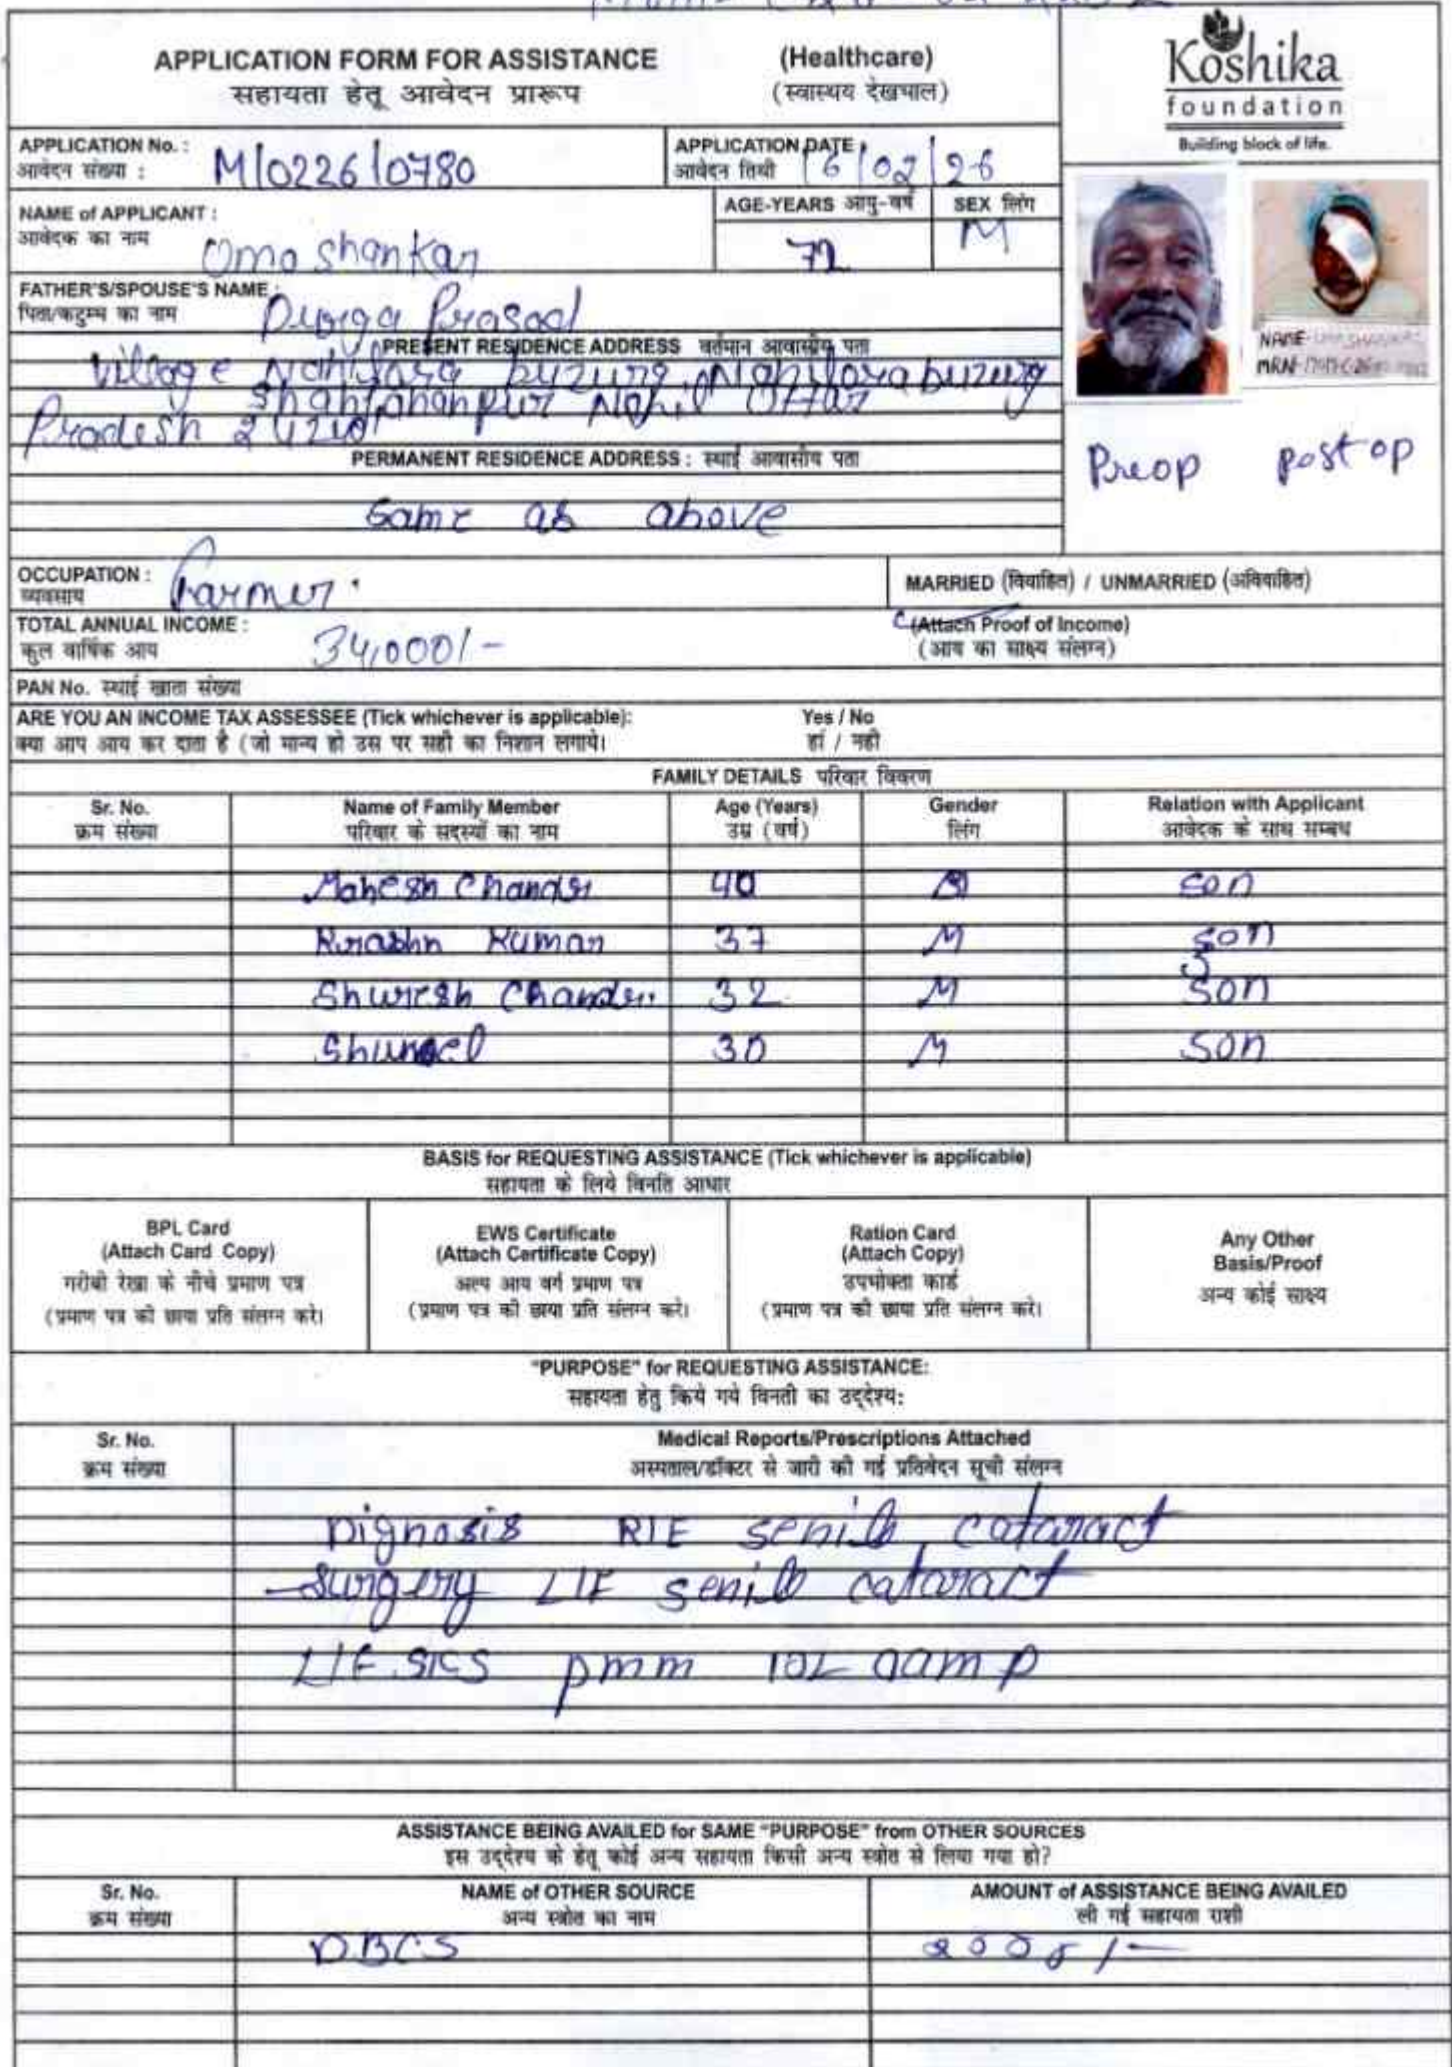 APPLICATION FORM FOR ASSISTANCE (Healthcare)
सहायता हेतू आवेदन प्रारूप (स्वास्थय देखभाल)
Koshika
foundation
Building block of life.
APPLICATION No. :
आवेदन संख्या : M/0226/0780
APPLICATION DATE :
आवेदन तिथी 16/02/26
NAME of APPLICANT :
आवेदक का नाम Omo shankar
AGE-YEARS आयु-वर्ष 72
SEX लिंग M
FATHER'S/SPOUSE'S NAME :
पिता/कटुम्ब का नाम Durga Prasad
PRESENT RESIDENCE ADDRESS वर्तमान आवासीय पता
Village buzurg,
Shahjahanpur Nahil Uttar
Pradesh
PERMANENT RESIDENCE ADDRESS : स्थाई आवासीय पता
Same as above
NAME
MRN
Preop post op
OCCUPATION :
व्यवसाय Farmer.
MARRIED (विवाहित) / UNMARRIED (अविवाहित)
TOTAL ANNUAL INCOME :
कुल वार्षिक आय 34,000/-
(Attach Proof of Income)
(आय का साक्ष्य संलग्न)
PAN No. स्थाई खाता संख्या
ARE YOU AN INCOME TAX ASSESSEE (Tick whichever is applicable): Yes / No
क्या आप आय कर दाता है (जो मान्य हो उस पर सही का निशान लगाये। हां / नही
FAMILY DETAILS परिवार विवरण
Sr. No. Name of Family Member Age (Years) Gender Relation with Applicant
क्रम संख्या परिवार के सदस्यों का नाम उम्र (वर्ष) लिंग आवेदक के साथ सम्बध
Mahesh Chandr 40 M son
Kumar 37 M son
Shuresh Chandr. 32 M son
30 M son
BASIS for REQUESTING ASSISTANCE (Tick whichever is applicable)
सहायता के लिये विनति आधार
BPL Card
(Attach Card Copy)
गरीबी रेखा के नीचे प्रमाण पत्र
(प्रमाण पत्र की छाया प्रति संलग्न करे।
EWS Certificate
(Attach Certificate Copy)
अल्प आय वर्ग प्रमाण पत्र
(प्रमाण पत्र की छाया प्रति संलग्न करे।
Ration Card
(Attach Copy)
उपभोक्ता कार्ड
(प्रमाण पत्र की छाया प्रति संलग्न करे।
Any Other
Basis/Proof
अन्य कोई साक्ष्य
"PURPOSE" for REQUESTING ASSISTANCE:
सहायता हेतु किये गये विनती का उद्देश्य:
Sr. No. Medical Reports/Prescriptions Attached
क्रम संख्या अस्पताल/डॉक्टर से जारी की गई प्रतिवेदन सूची संलग्न
Dignosis R/E senile cataract
Surgery L/E senile cataract
L/E SICS pmm IOL
ASSISTANCE BEING AVAILED for SAME "PURPOSE" from OTHER SOURCES
इस उद्देश्य के हेतू कोई अन्य सहायता किसी अन्य स्त्रोत से लिया गया हो?
Sr. No. NAME of OTHER SOURCE AMOUNT of ASSISTANCE BEING AVAILED
क्रम संख्या अन्य स्त्रोत का नाम ली गई सहायता राशी
DBCS 2000/-